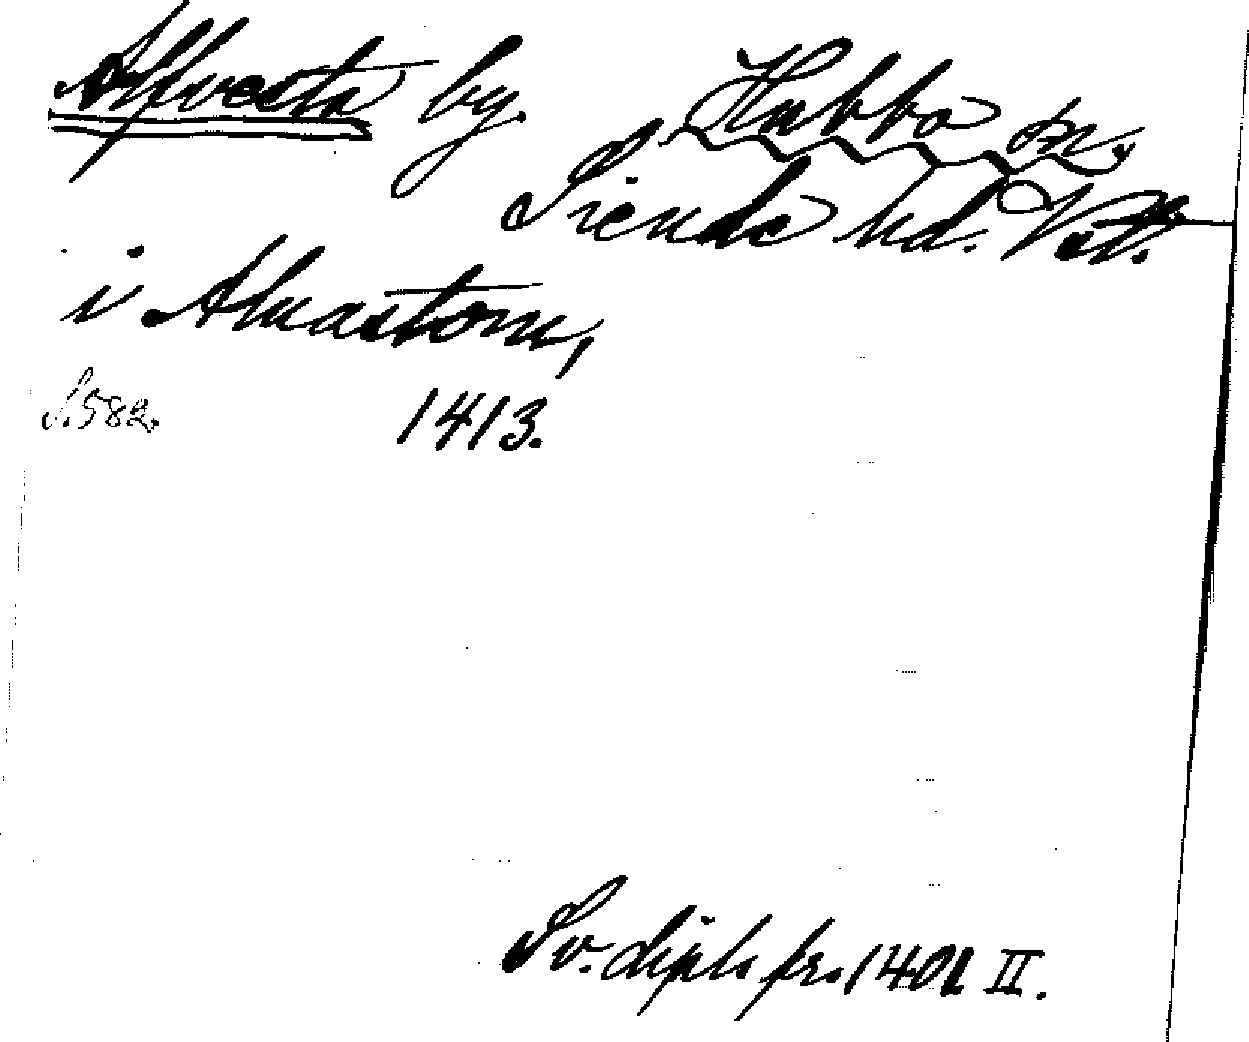 Alfvesta by.
Kubbo sn,
Siende hd. Vstl.
i Aluastom,
S. 582. 1413.
Sv. dipl. fr. 1401 II.